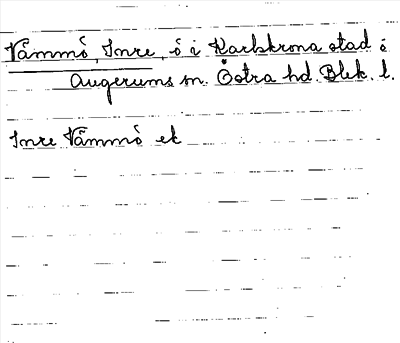 Våmmö, Inre, ö i Karlskrona stad o
Augerums sn. Östra hd. Blek. l.
Inre Våmmö ek